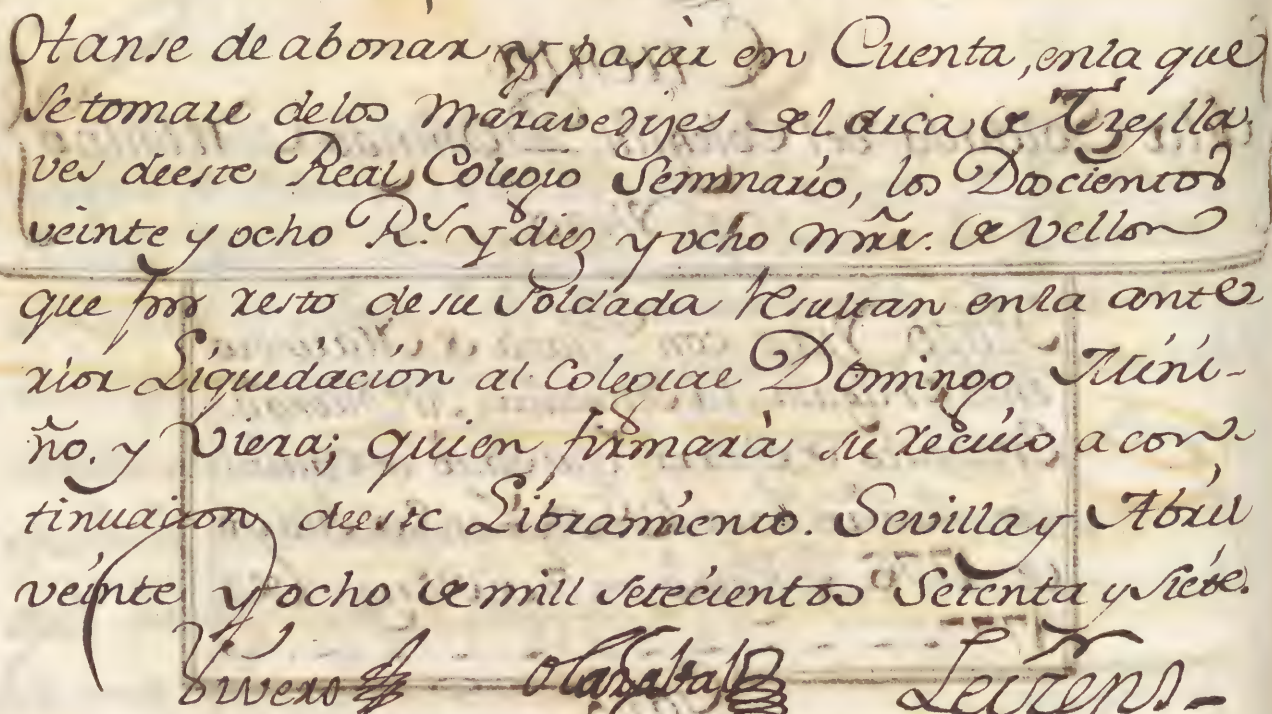 Hanse de abonar y pasàr en Cuenta, enla que
se tomare delos Maravedijes del arca de Tres lla
ves deeste Real Colegio Seminario, los Doscientos
veinte y ocho R.ˢ y diez y ocho mȓs. de vellon
que por resto de su Soldada resultan enla ante
rior Liquidación al Colegial Domingo Mini-
ño, y Viera; quien firmarà su recivo, a con-
tinuacion deeste Libramiento. Sevilla y Abril
veinte y ocho de mill setecientos Setenta y siete.
Vivero Olazabal